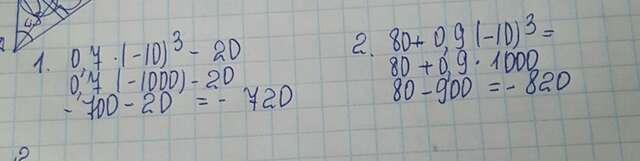 1. 0,7 · (-10)³ - 20
0,7 (-1000) - 20
- 700 - 20 = - 720
2. 80 + 0,9 (-10)³ =
80 + 0,9 · 1000
80 - 900 = - 820